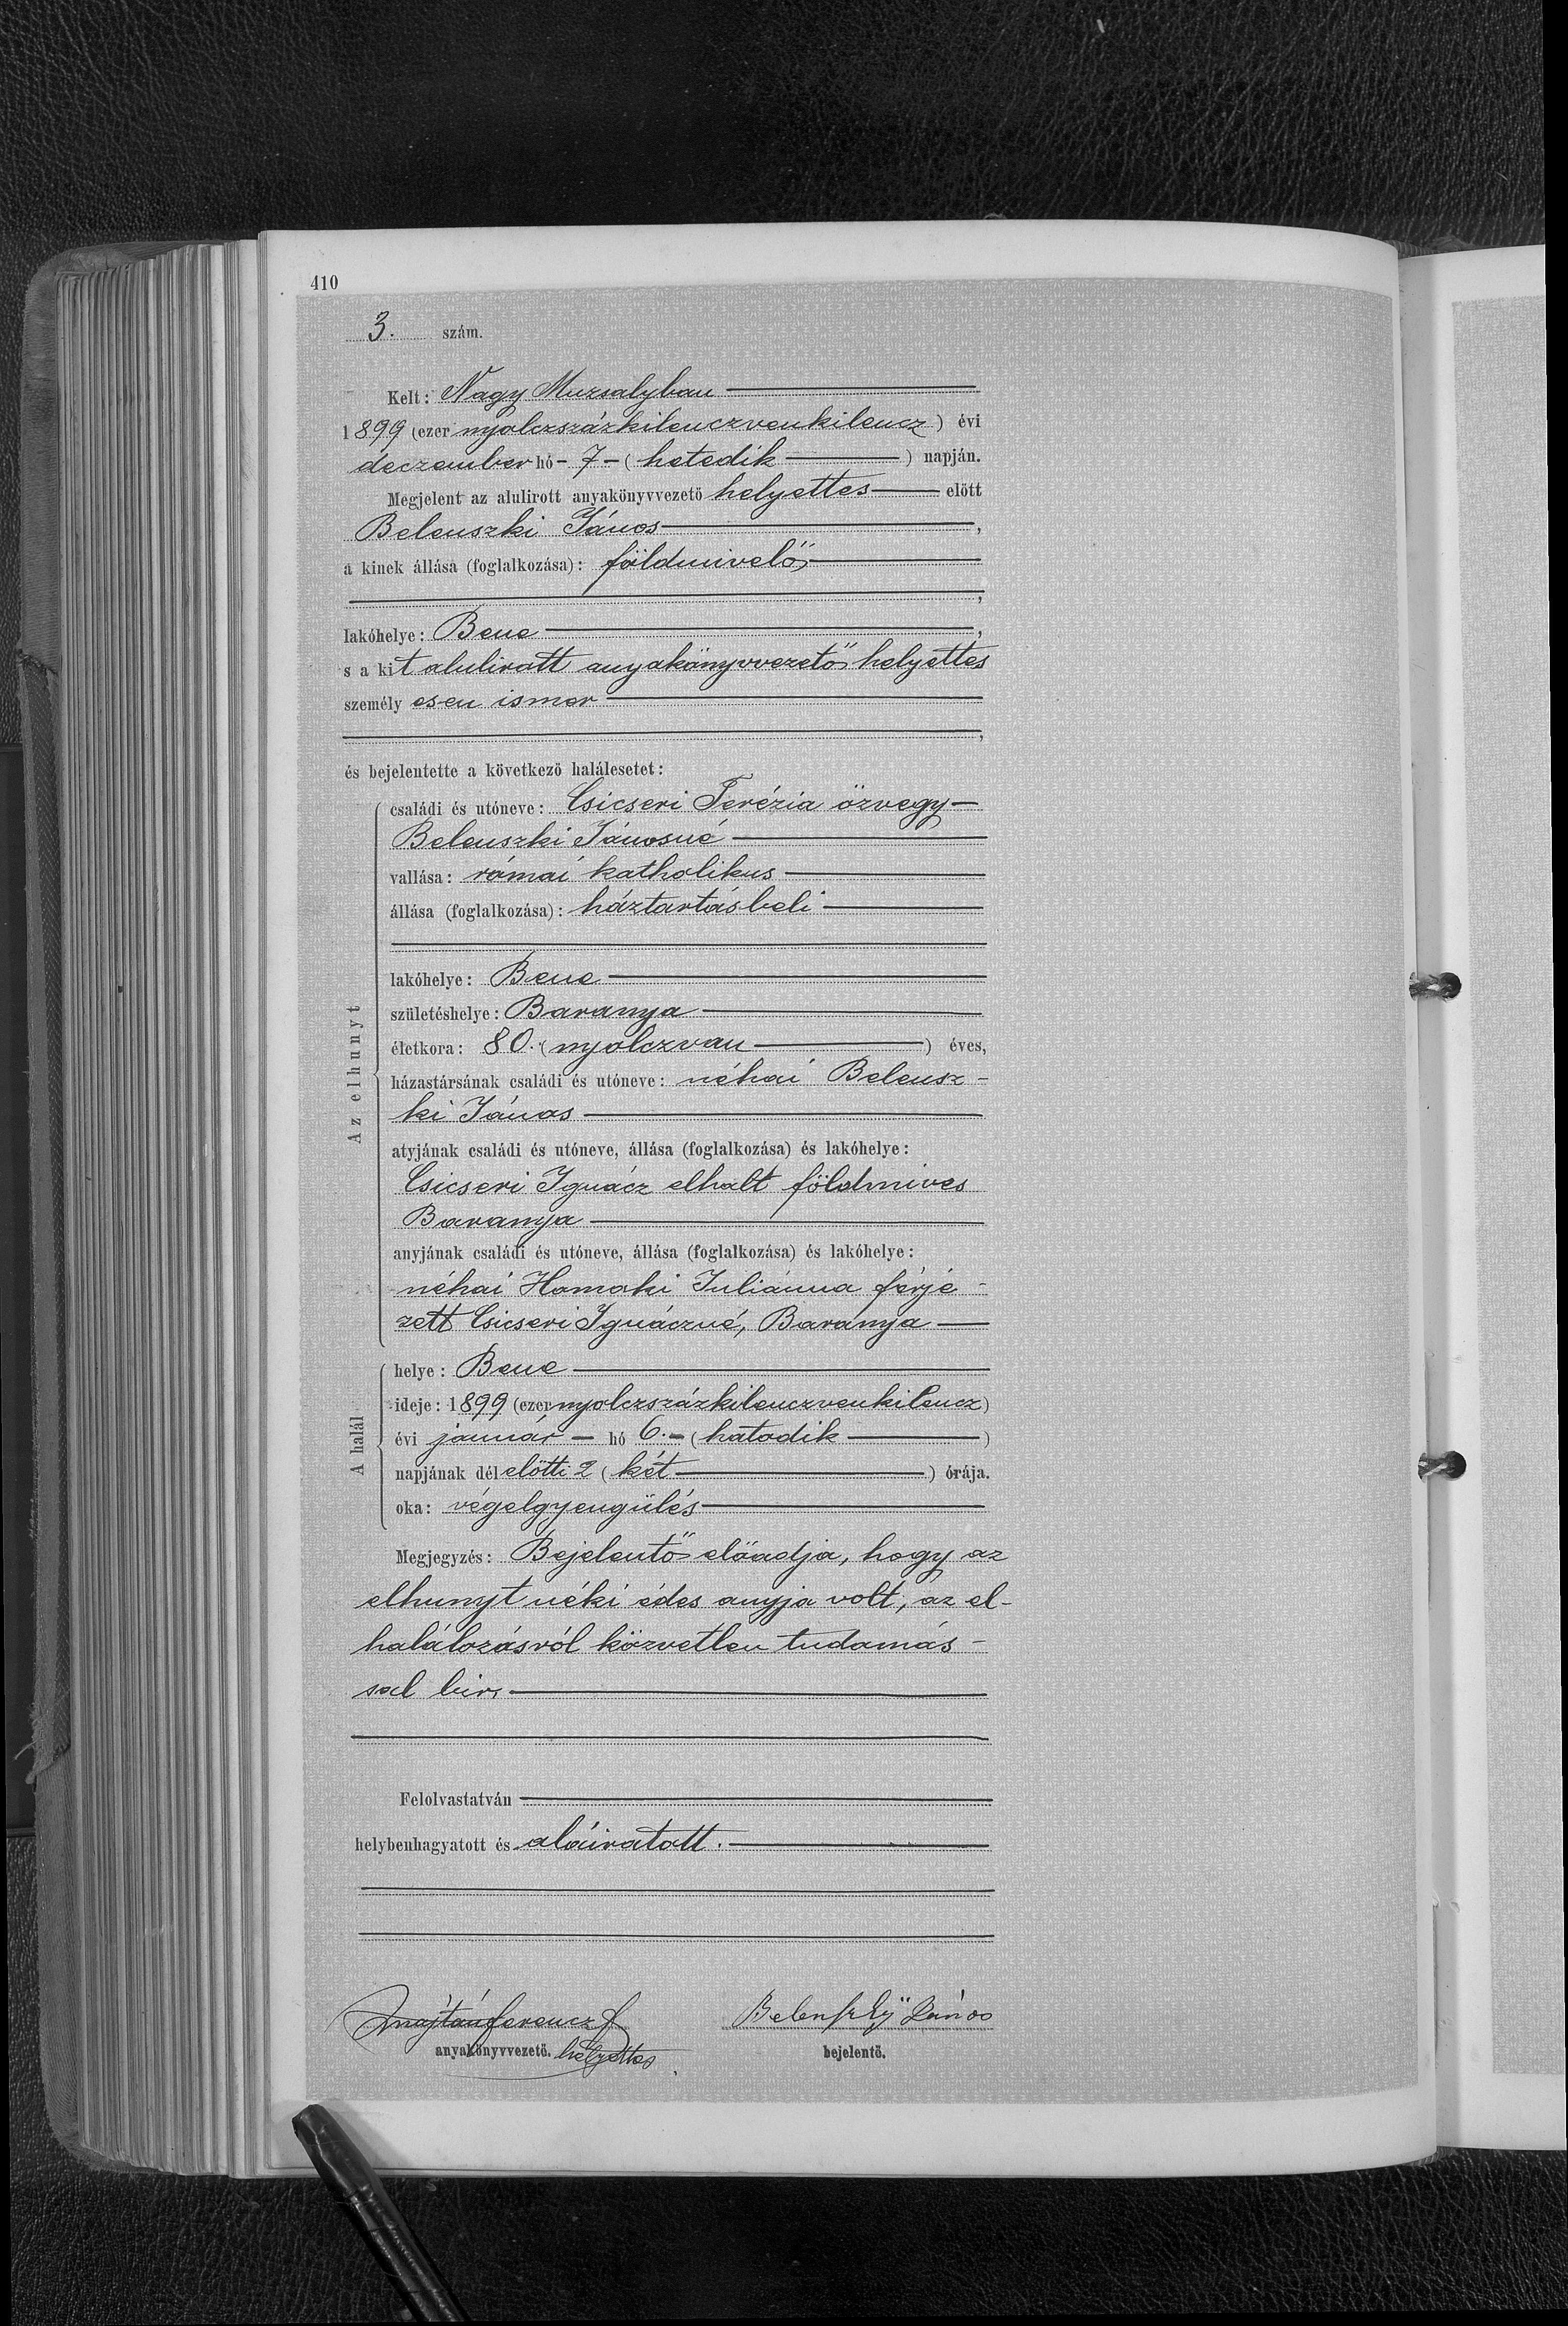 410
3. szám.
Kelt: Nagy Muzsalyban
1899 (ezer nyolczszázkilenczvenkilencz) évi
deczember hó - 7 - (hetedik) napján.
Megjelent az alulirott anyakönyvvezető helyettes előtt
Belenszki János,
a kinek állása (foglalkozása): földmivelő
,
lakóhelye: Bene,
s a kit alulirott anyakönyvvezető helyettes
személyesen ismer
,
és bejelentette a következő halálesetet:
Az elhunyt
családi és utóneve: Csicseri Terézia özvegy
Belenszki Jánosné
vallása: római katholikus
állása (foglalkozása): háztartásbeli
lakóhelye: Bene
születéshelye: Baranya
életkora: 80. (nyolczvan) éves,
házastársának családi és utóneve: néhai Belensz-
ki János
atyjának családi és utóneve, állása (foglalkozása) és lakóhelye:
Csicseri Ignácz elhalt földmives
Baranya
anyjának családi és utóneve, állása (foglalkozása) és lakóhelye:
néhai Homoki Juliánna férje-
zett Csicseri Ignáczné, Baranya
A halál
helye: Bene
ideje: 1899 (ezer nyolczszázkilenczvenkilencz)
évi január - hó 6. - (hatodik)
napjának délelőtti 2 (két) órája.
oka: végelgyengülés
Megjegyzés: Bejelentő előadja, hogy az
elhunyt néki édes anyja volt, az el-
halálozásról közvetlen tudomás-
sal bir.
Felolvastatván
helybenhagyatott és aláiratott.
Ferencz Belenszky János
anyakönyvvezető. helyettes bejelentő.